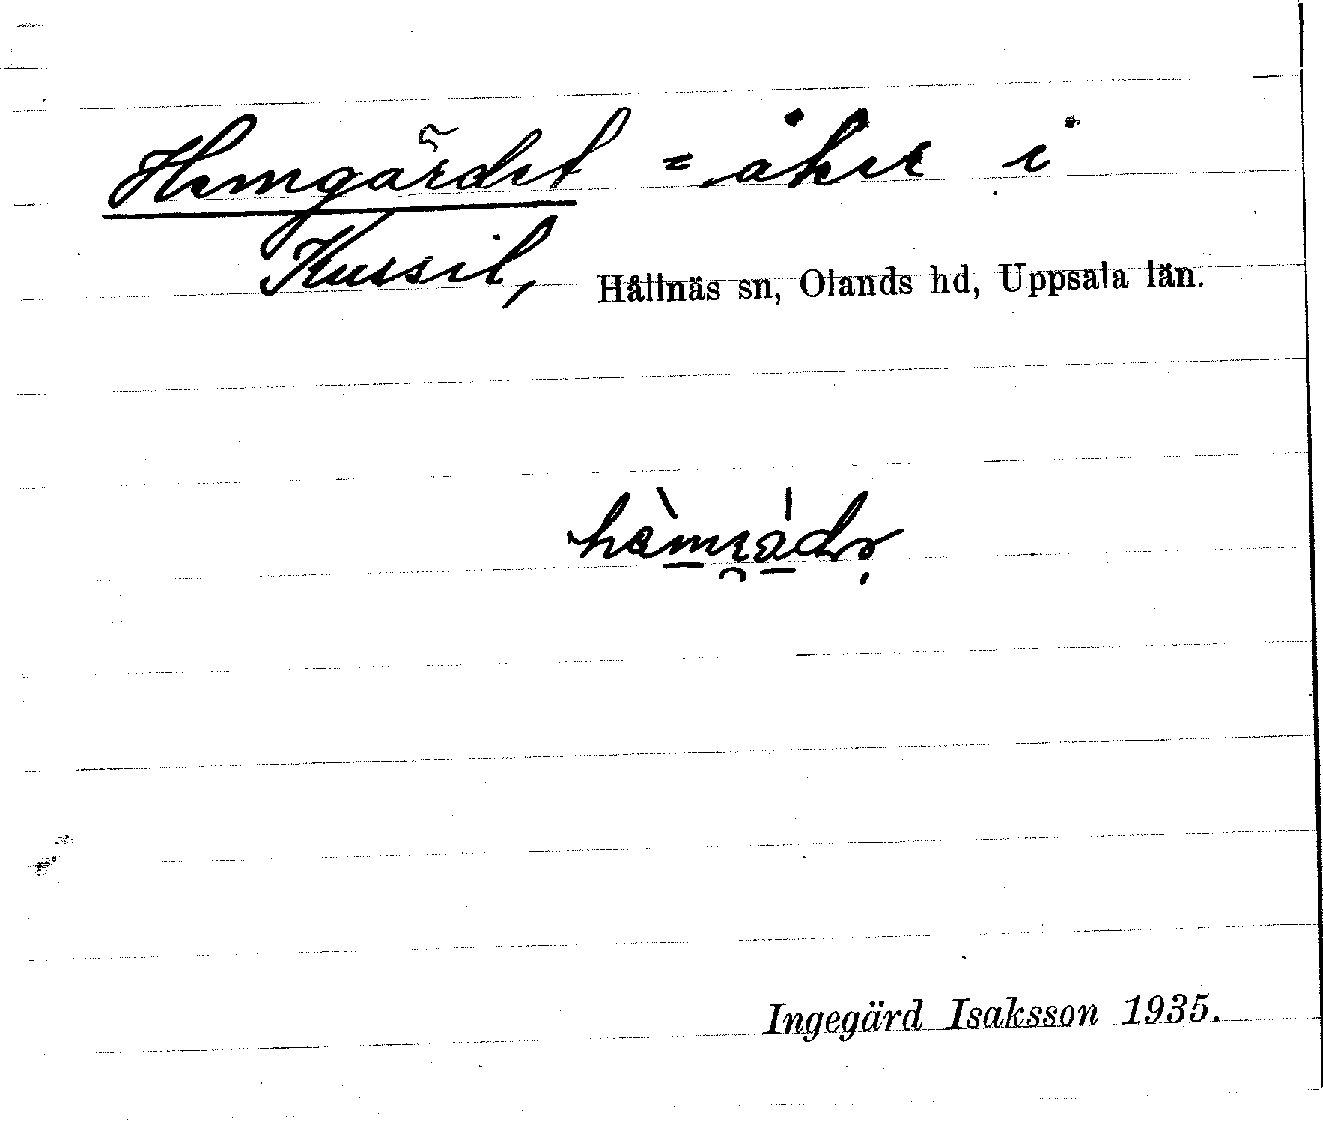 Hemgärdet = åker i
Kussil, Hållnäs sn, Olands hd, Uppsala län.
Ingegärd Isaksson 1935.